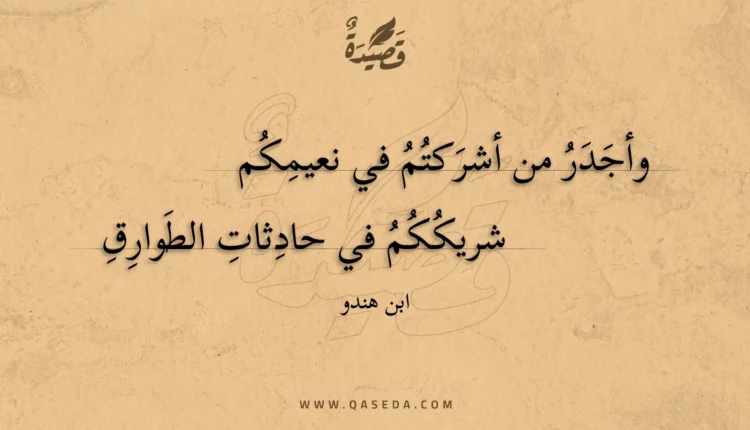 قَصِيْدَةٌ
وأجَدَرُ من أشرَكتُمُ في نعيمِكُم
شريكُكُمُ في حادِثاتِ الطَوارِقِ
ابن هندو
WWW.QASEDA.COM